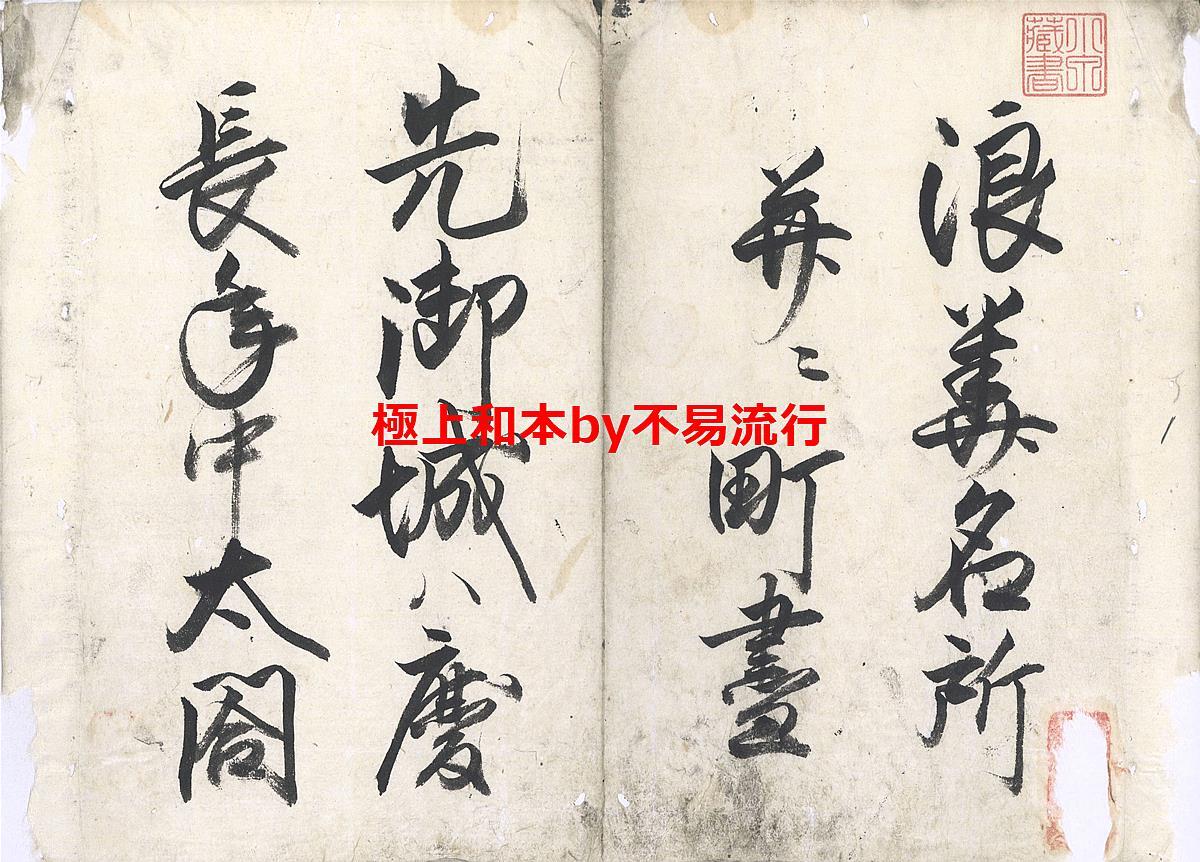 藏書
浪華名所
并ニ町盡
先御城ハ慶
長年中太閤
極上和本by不易流行